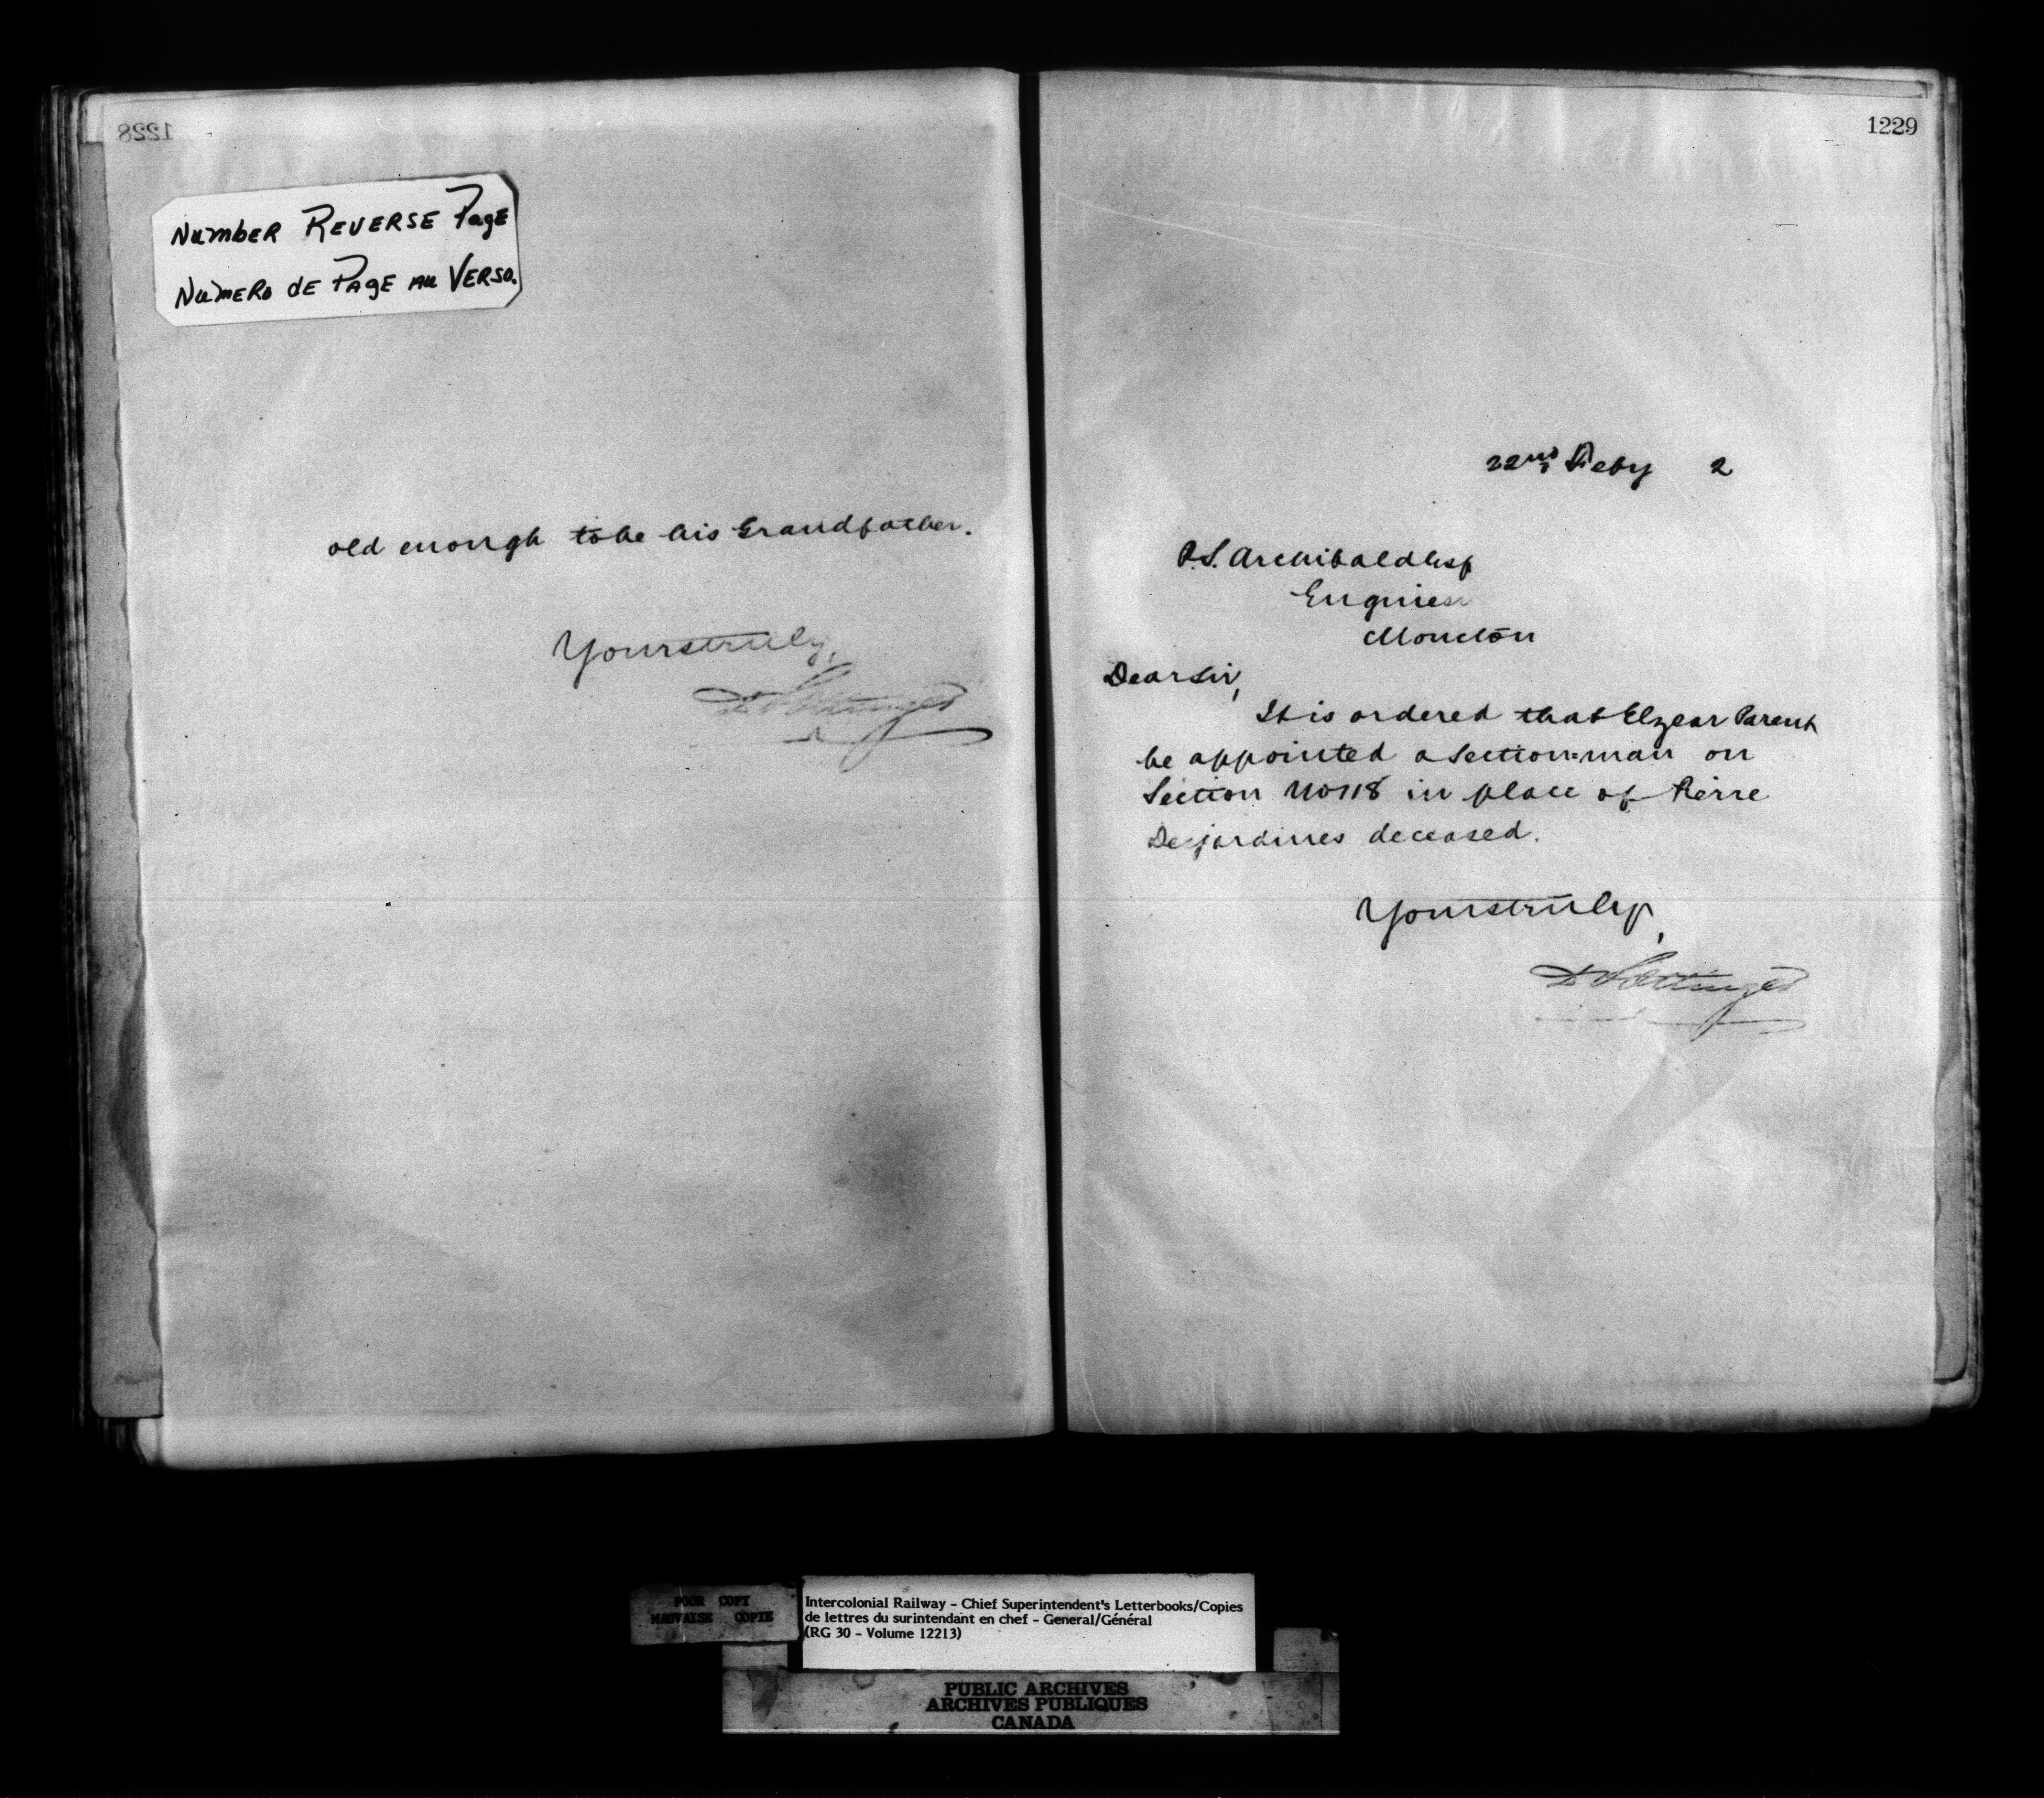 1228
Number Reverse Page
Numero de Page au Verso.
old enough to be his Grandfather.
Yours truly,
D Pottinger
1229
22nd Feby 2
P.S. Archibald Esq
Engineer
Moncton
Dear Sir,
It is ordered that Elzear Parent
be appointed a section-man on
Section No 118 in place of Pierre
Desjardines deceased.
Yours truly,
D Pottinger
POOR COPY
MAUVAISE COPIE
Intercolonial Railway - Chief Superintendent's Letterbooks/Copies
de lettres du surintendant en chef - General/Général
(RG 30 - Volume 12213)
PUBLIC ARCHIVES
ARCHIVES PUBLIQUES
CANADA